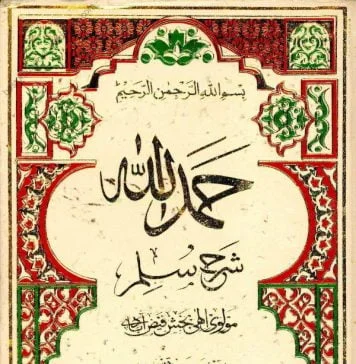 بسم الله الرحمن الرحيم
حمد الله
شرح سلم
مولوی الهی بخش فیض